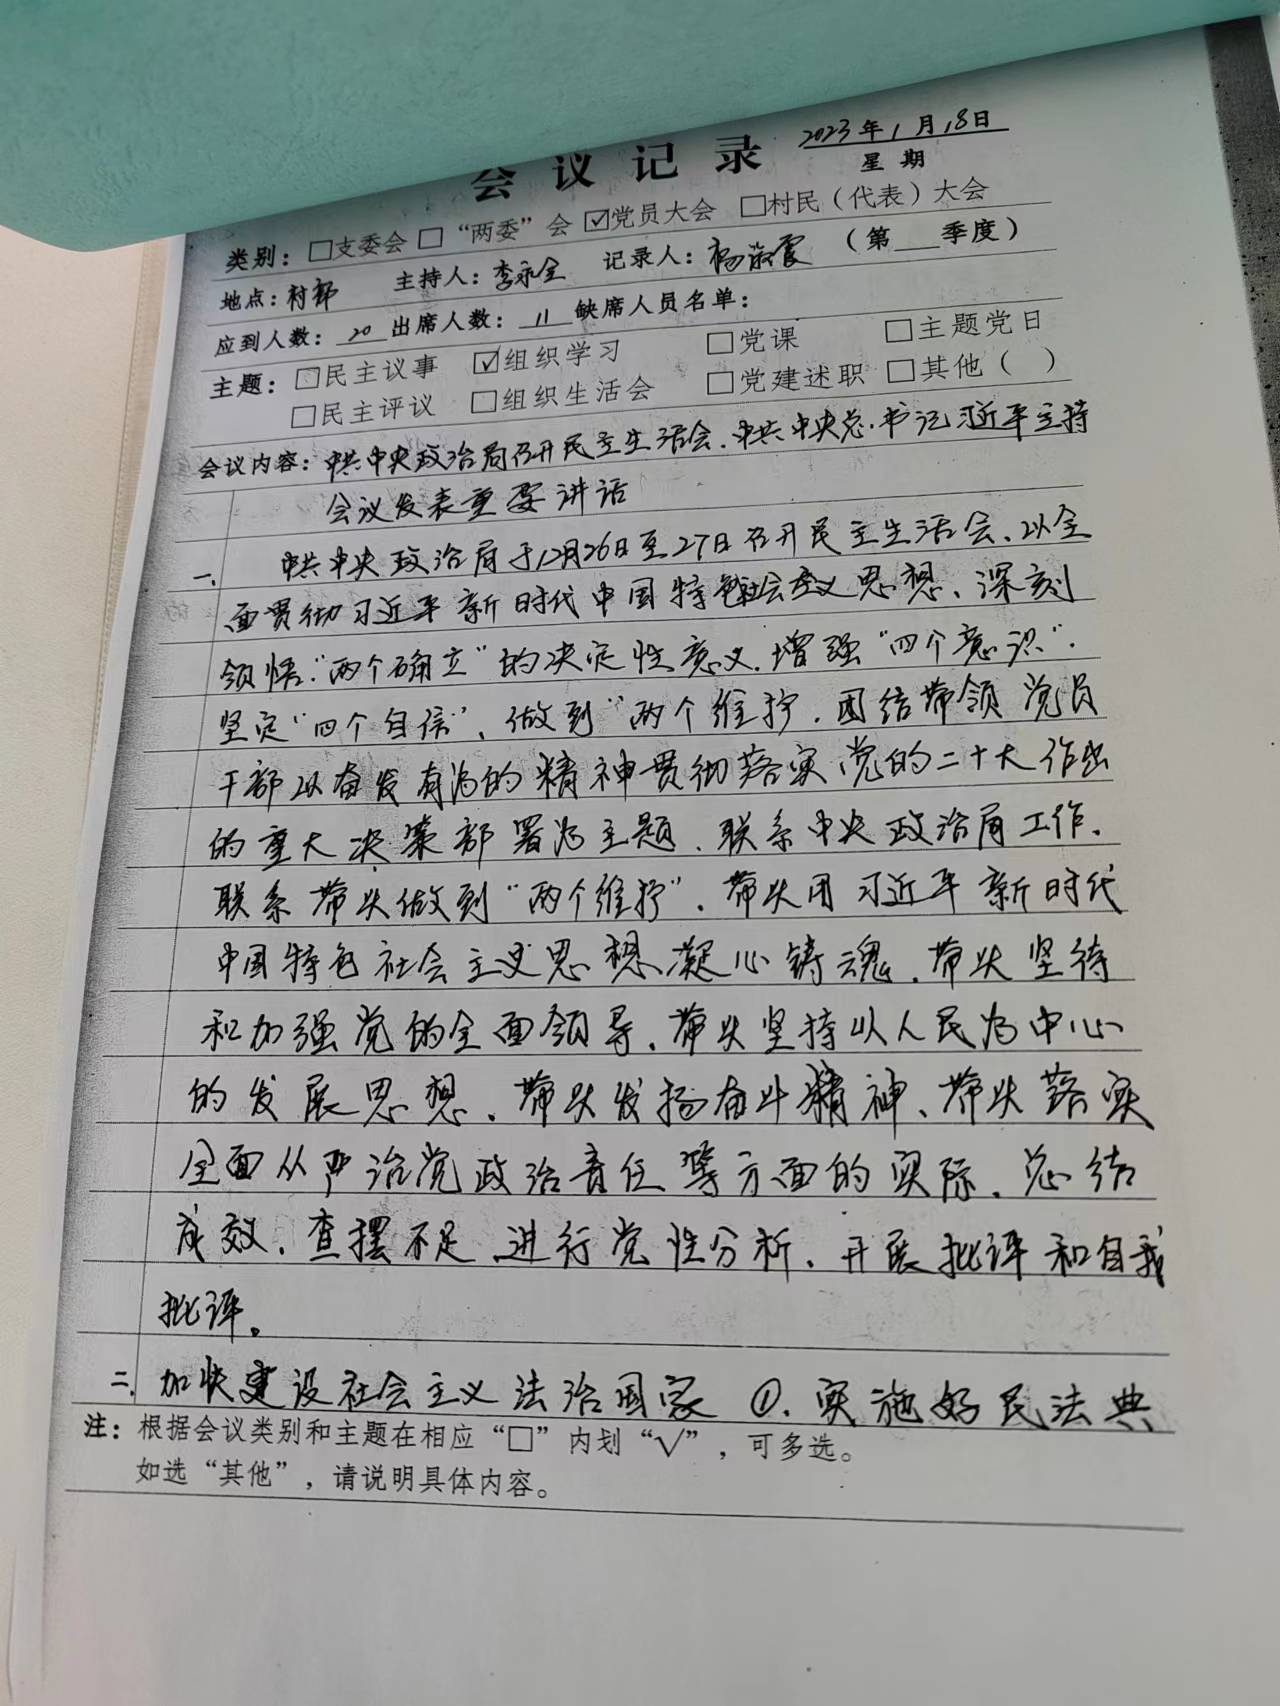 会议记录 2023年1月18日
星期
类别：□支委会 □“两委”会 ☑党员大会 □村民（代表）大会
地点：村部 主持人：李永全 记录人：杨淑霞 （第 季度）
应到人数：20 出席人数：11 缺席人员名单：
主题：□民主议事 ☑组织学习 □党课 □主题党日
□民主评议 □组织生活会 □党建述职 □其他（ ）
会议内容：中共中央政治局召开民主生活会、中共中央总书记习近平主持
会议发表重要讲话
一、 中共中央政治局于12月26日至27日召开民主生活会、以全
面贯彻习近平新时代中国特色社会主义思想、深刻
领悟“两个确立”的决定性意义、增强“四个意识”、
坚定“四个自信”、做到“两个维护、团结带领党员
干部以奋发有为的精神贯彻落实党的二十大作出
的重大决策部署为主题、联系中央政治局工作、
联系带头做到“两个维护”、带头用习近平新时代
中国特色社会主义思想凝心铸魂、带头坚持
和加强党的全面领导、带头坚持以人民为中心
的发展思想、带头发扬奋斗精神、带头落实
全面从严治党政治责任等方面的实际、总结
成效、查摆不足、进行党性分析、开展批评和自我
批评。
二、加快建设社会主义法治国家 ①、实施好民法典
注：根据会议类别和主题在相应“□”内划“√”，可多选。
如选“其他”，请说明具体内容。